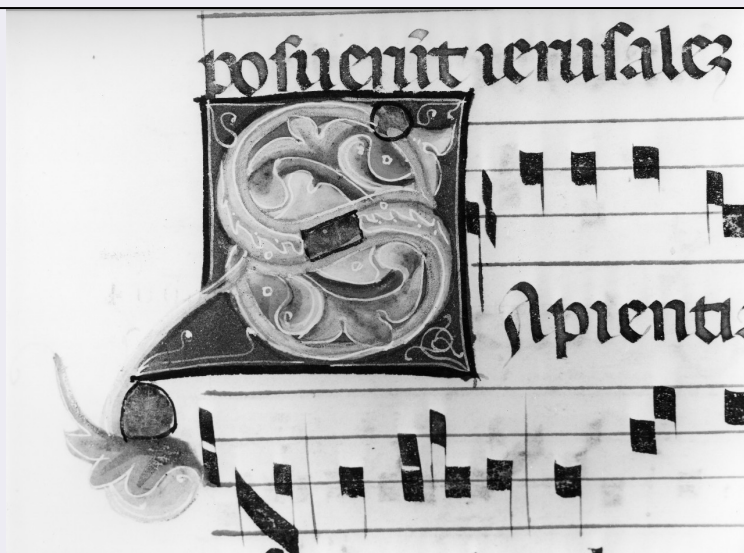 posuerūt ierusalez
SApientia